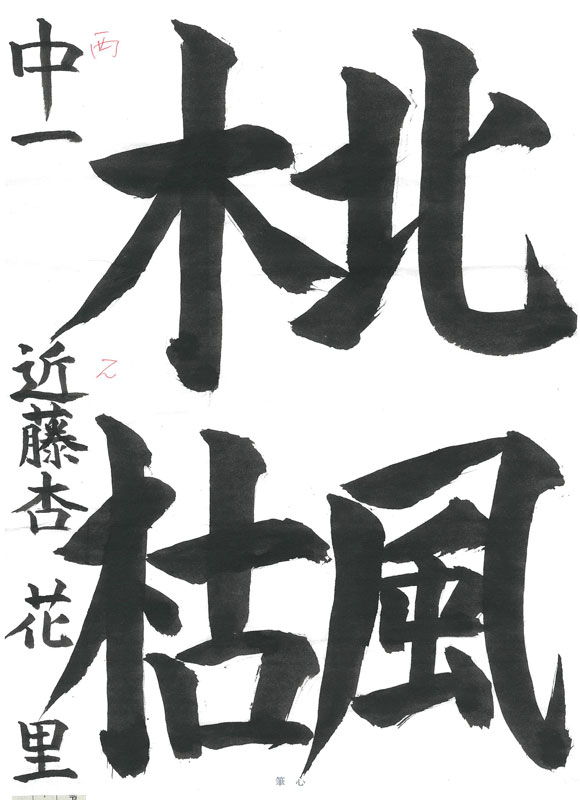 北風
木枯
中一 近藤杏花里
西
筆心